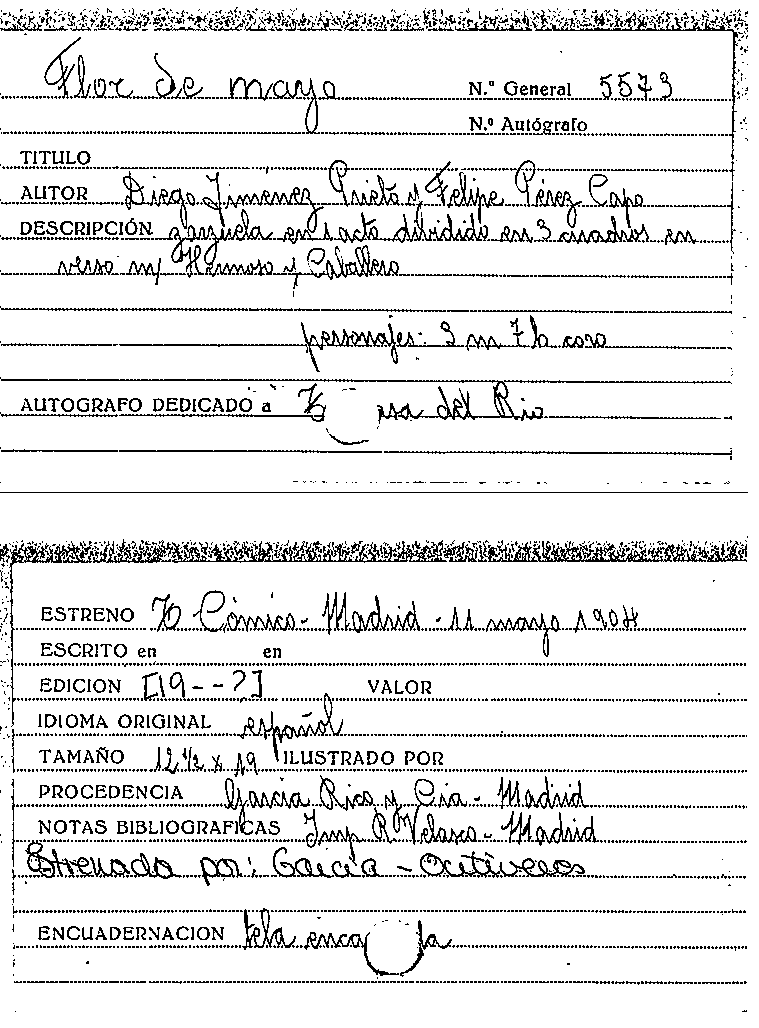 Flor de mayo
N.º General 5573
N.º Autógrafo
TITULO
AUTOR Diego Jiménez Prieto y Felipe Pérez Capo
DESCRIPCIÓN zarzuela en 1 acto dividido en 3 cuadros en
verso m/ Hermoso y Caballero
personajes: 3 m 7 h coro
AUTOGRAFO DEDICADO a del Rio
ESTRENO Cómico - Madrid - 11 mayo 1904
ESCRITO en en
EDICION [19--?] VALOR
IDIOMA ORIGINAL español
TAMAÑO 12 1/2 x 19 ILUSTRADO POR
PROCEDENCIA García Rico y Cia - Madrid
NOTAS BIBLIOGRAFICAS Imp R Velasco - Madrid
Estrenada por: García - Ontiveros
ENCUADERNACION tela